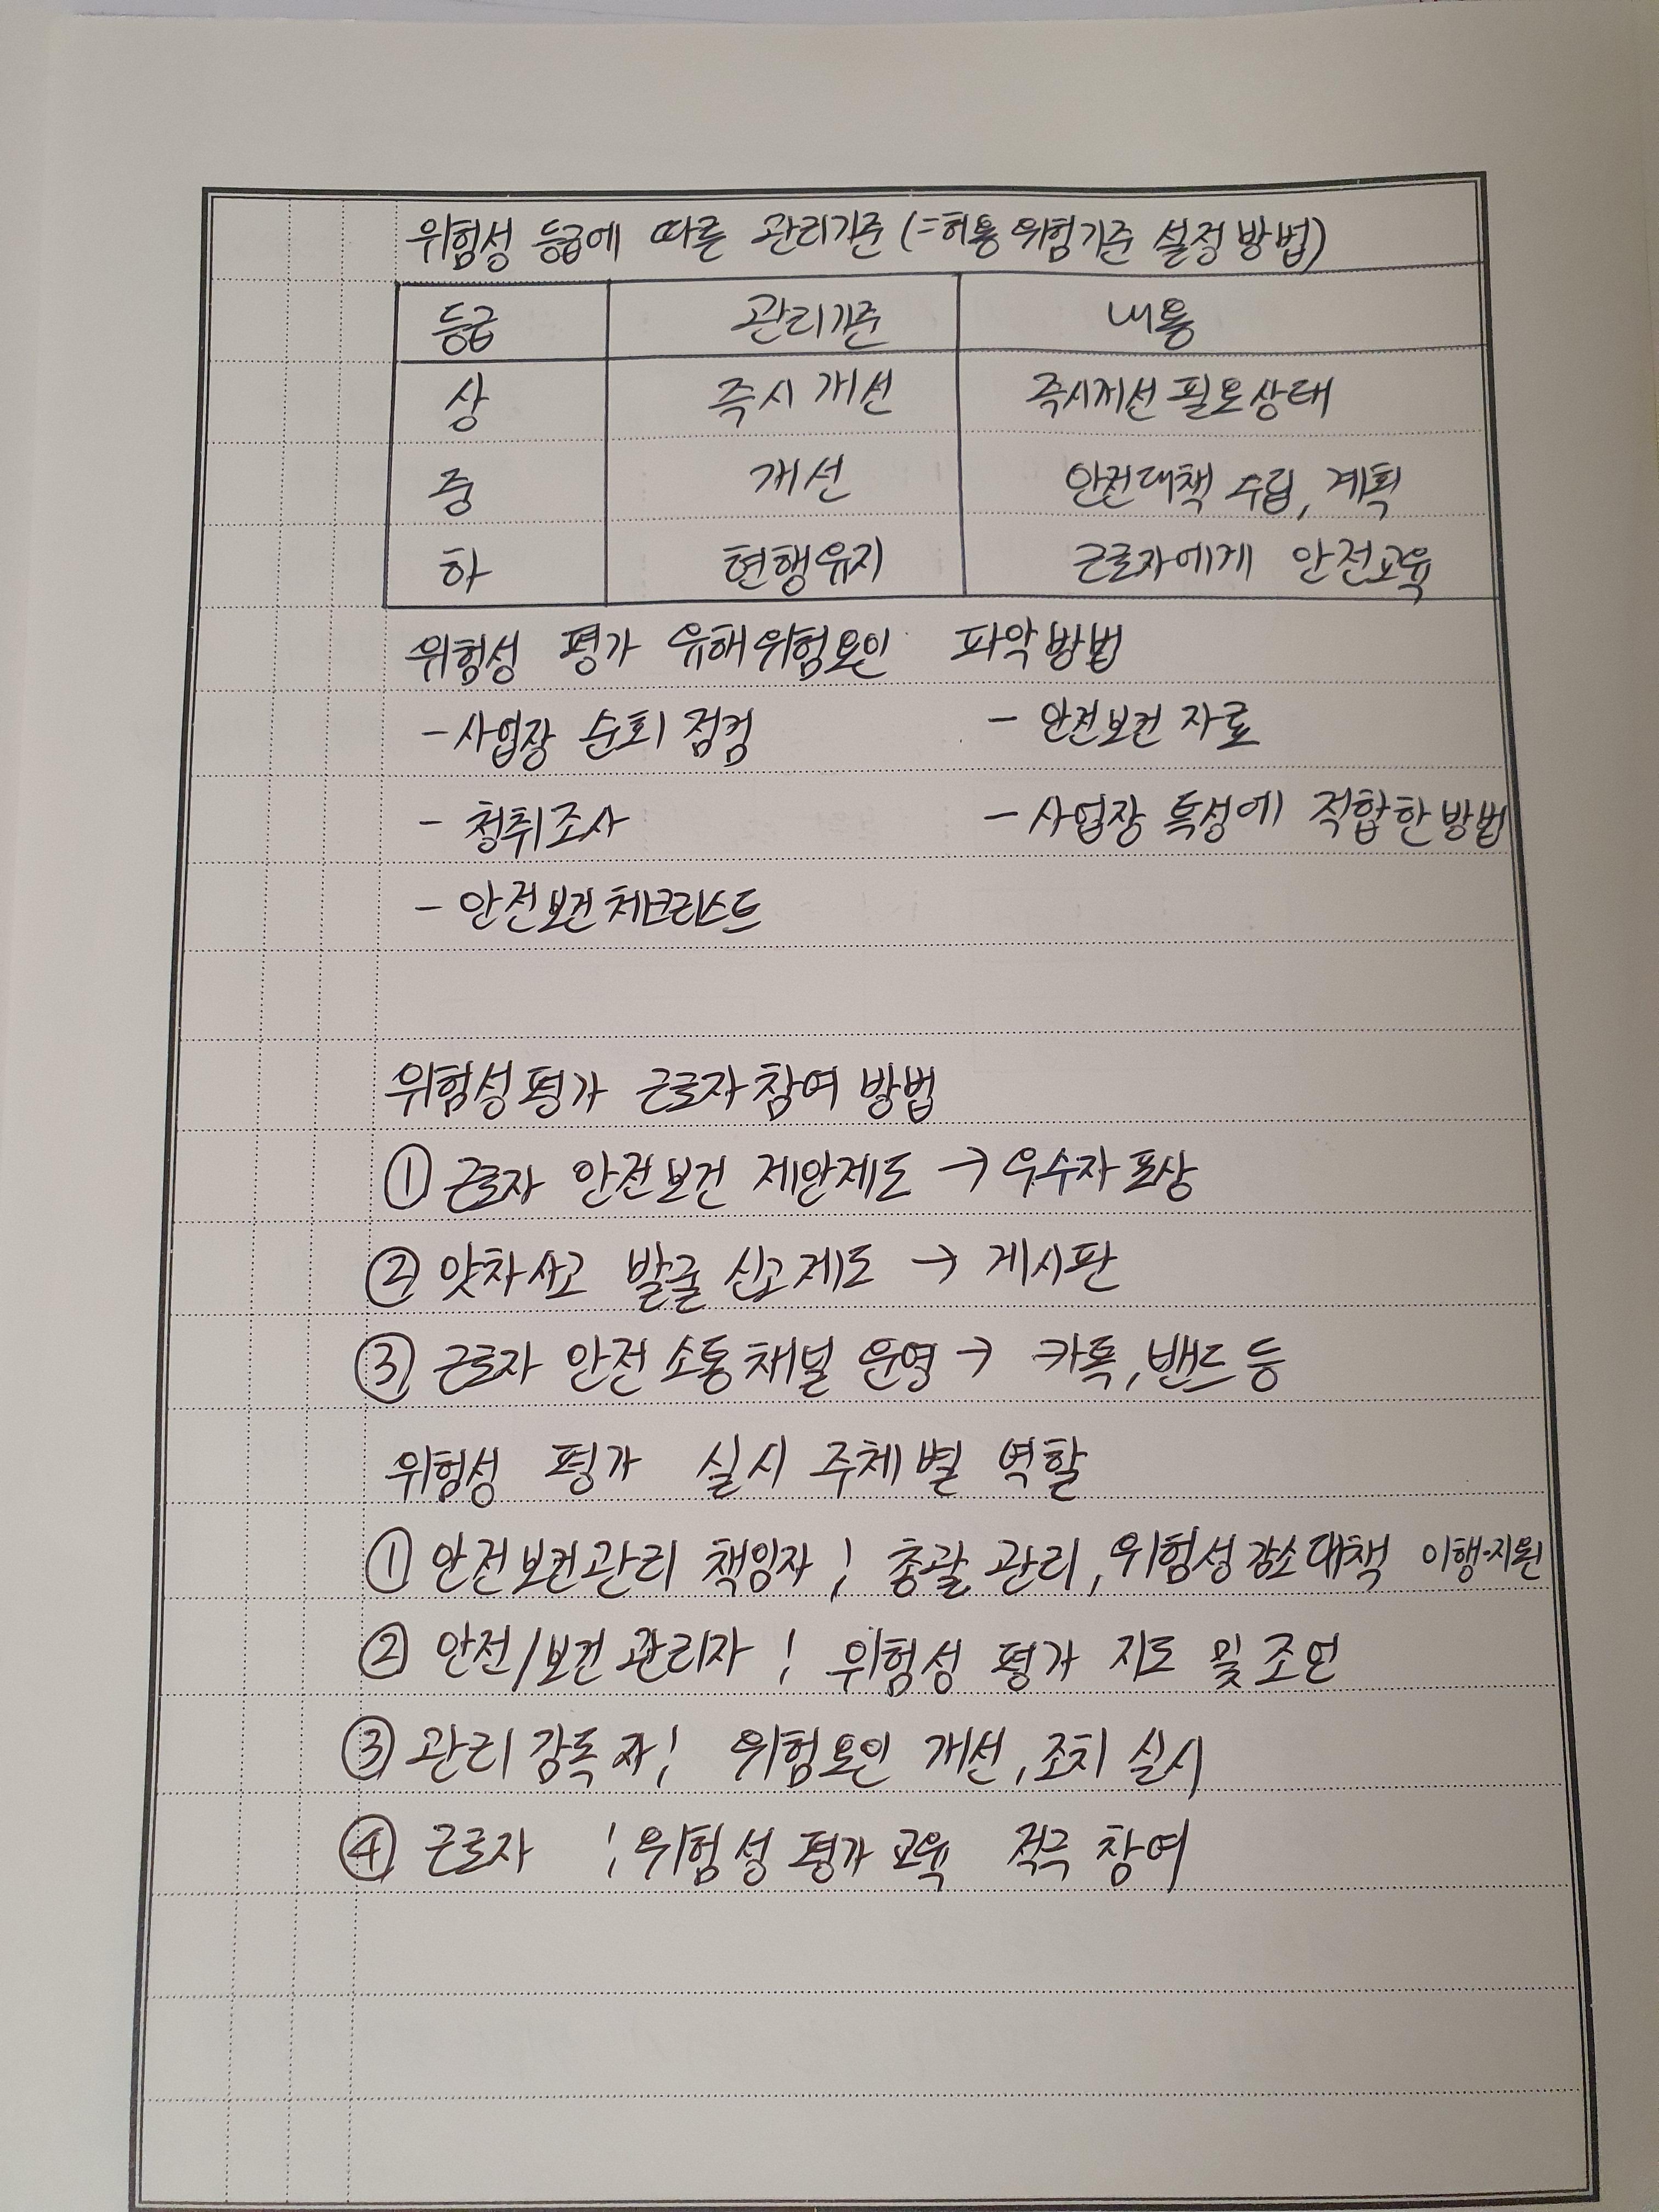 위험성 등급에 따른 관리기준 (=허용 위험기준 설정 방법)
등급 관리기준 내용
상 즉시 개선 즉시개선 필요상태
중 개선 안전대책 수립, 계획
하 현행유지 근로자에게 안전교육
위험성 평가 유해위험요인 파악방법
- 사업장 순회 점검 - 안전보건 자료
- 청취조사 - 사업장 특성에 적합한 방법
- 안전보건체크리스트
위험성평가 근로자 참여 방법
① 근로자 안전보건 제안제도 → 우수자 포상
② 앗차사고 발굴 신고제도 → 게시판
③ 근로자 안전소통채널 운영 → 카톡, 밴드 등
위험성 평가 실시 주체별 역할
① 안전보건관리 책임자 ; 총괄 관리, 위험성 감소대책 이행·지원
② 안전/보건관리자 ; 위험성 평가 지도 및 조언
③ 관리감독자 ; 위험요인 개선, 조치 실시
④ 근로자 ; 위험성 평가 교육 적극 참여